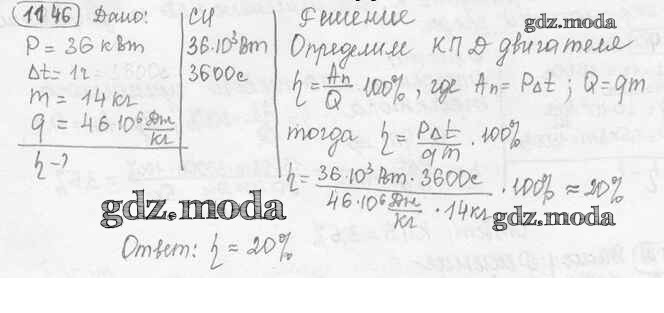 1146 Дано:
P = 36 кВт
Δt = 1ч
m = 14 кг
q = 46·10⁶ Дж/кг
η - ?
СИ
36·10³Вт
3600с
Решение
gdz.moda
Определим КПД двигателя
η = Aп/Q · 100%, где Aп = PΔt ; Q = qm
тогда η = PΔt/qm · 100%
η = 36·10³Вт · 3600с / 46·10⁶ Дж/кг · 14кг · 100% ≈ 20%
gdz.moda
gdz.moda
Ответ: η = 20%